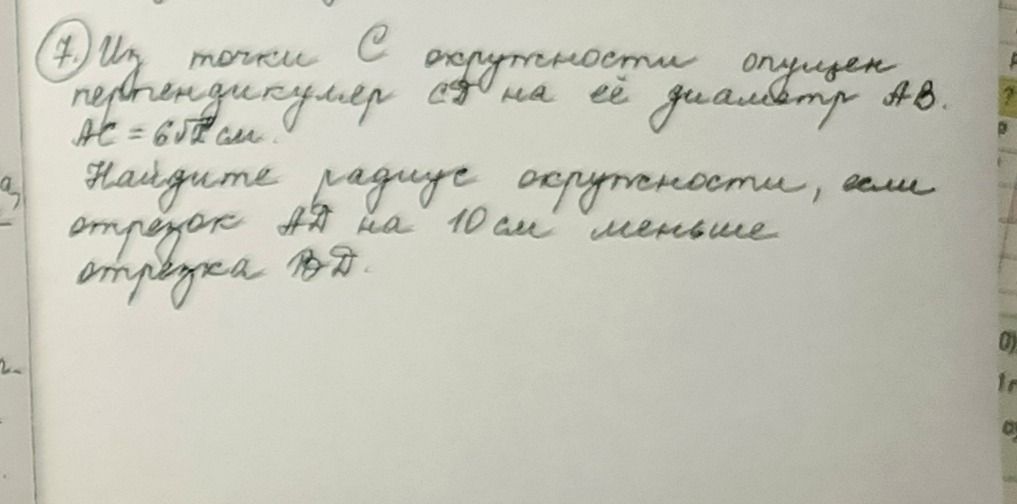 7. Из точки С окружности опущен
перпендикуляр CD на её диаметр AB.
AC = 6√2 см.
Найдите радиус окружности, если
отрезок AD на 10 см меньше
отрезка BD.